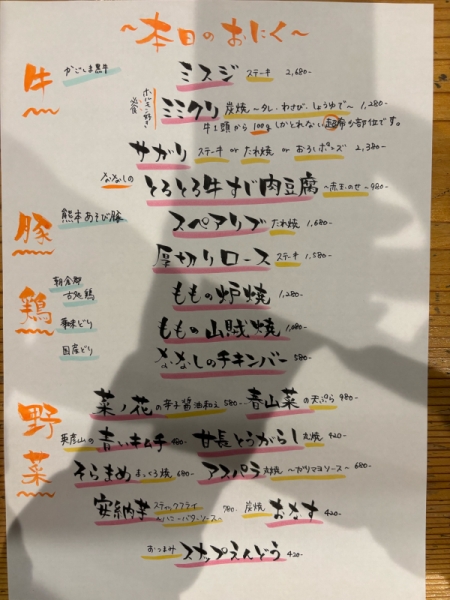 〜本日のおにく〜
牛 かごしま黒牛 ミスジ ステーキ 2,680-
ホルモン好き必食 ミミクリ 炭焼〜タレ・わさび・しょうゆで〜 1,280-
牛1頭から100gしかとれない超希少部位です。
サガリ ステーキ or たれ焼 or おろしポンズ 2,380-
ななしの とろとろ牛すじ肉豆腐 〜赤玉のせ〜 980-
豚 熊本あそび豚 スペアリブ たれ焼 1,680-
厚切りロース ステーキ 1,580-
鶏 朝倉郡 古処鶏 ももの炉焼 1,280-
華味どり ももの山賊焼 1,080-
国産どり ななしのチキンバー 580-
野菜 菜ノ花の辛子醤油和え 580- 青山菜の天ぷら 980-
英彦山の青いキムチ 480- 甘長とうがらし 丸焼 420-
そらまめ まっくろ焼 680- アスパラ 丸焼 〜ガリマヨソース〜 680-
安納芋 スティックフライ 〜ハニーバターソース〜 780- 炭焼 おなす 420-
おつまみ スナップえんどう 420-